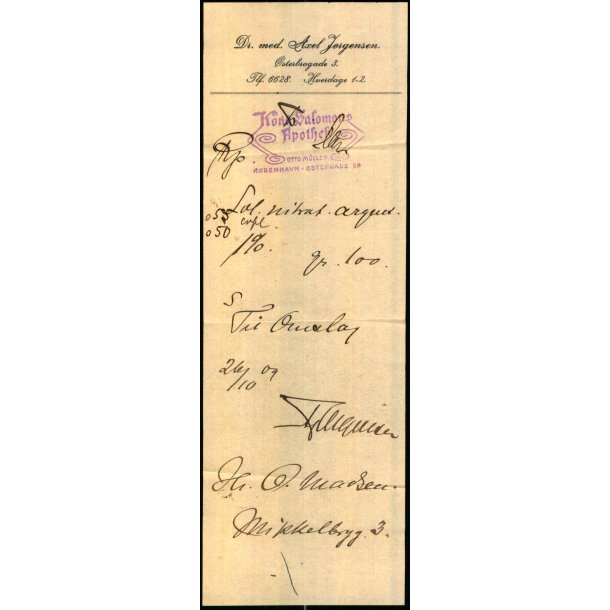 Dr. med. Axel Jørgensen.
Østerbrogade 3.
Tlf. 6628. Hverdage 1-2.
Kong Salomons
Apothek
OTTO MÜLLER
KØBENHAVN · ØSTERGADE 58
Rp.
Sol. nitrat. argent.
055
050
1%
gr. 100.
S
Til Omslag
26/10 09
Jørgensen
Hr. O. Madsen.
Mikkelbryg. 3.